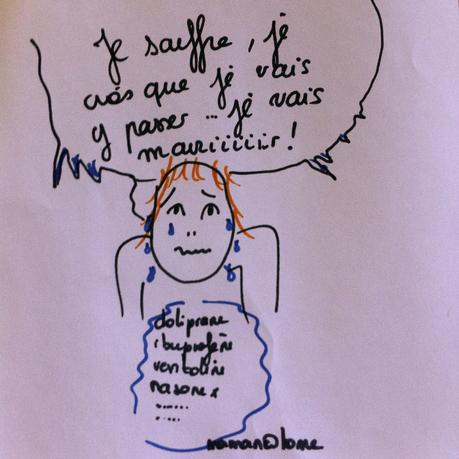 Je souffre, je
crois que je vais
y passer ... je vais
mouriiiiiir !
doliprane
ibuprofène
ventoline
nasonex
.......
.....
maman@home